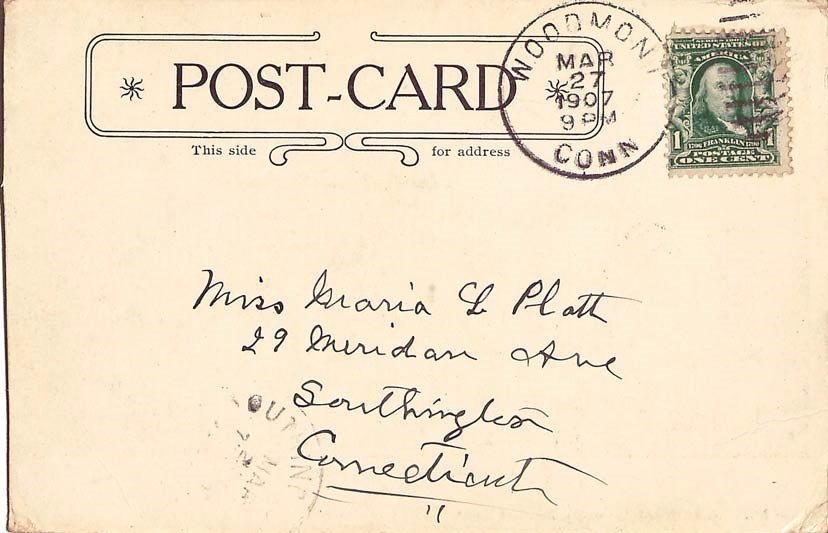 POST-CARD
This side for address
WOODMONT
MAR
27
1907
9 PM
CONN
SERIES 1902
UNITED STATES OF
AMERICA
1
1706 FRANKLIN 1790
POSTAGE
ONE CENT
Miss Maria L Platt
29 Meridan Ave
Southington
Connecticut
"
MAR